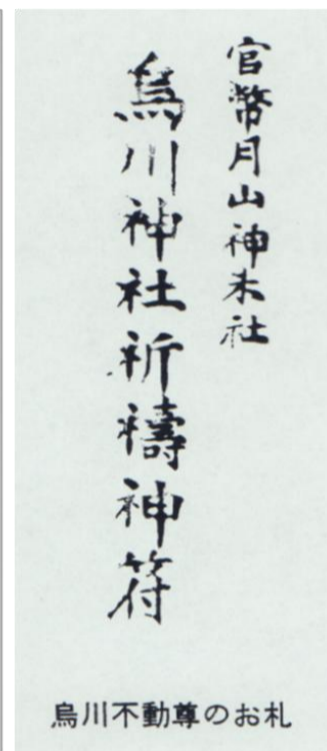 官幣月山神末社
烏川神社祈禱神符
烏川不動尊のお札